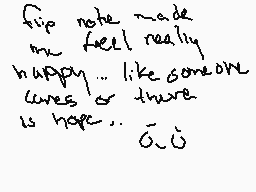 flip note made
me feel really
happy... like someone
cares or there
is hope..